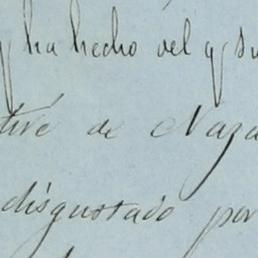 y ha hecho del q su
tiré de Naza
disgustado por